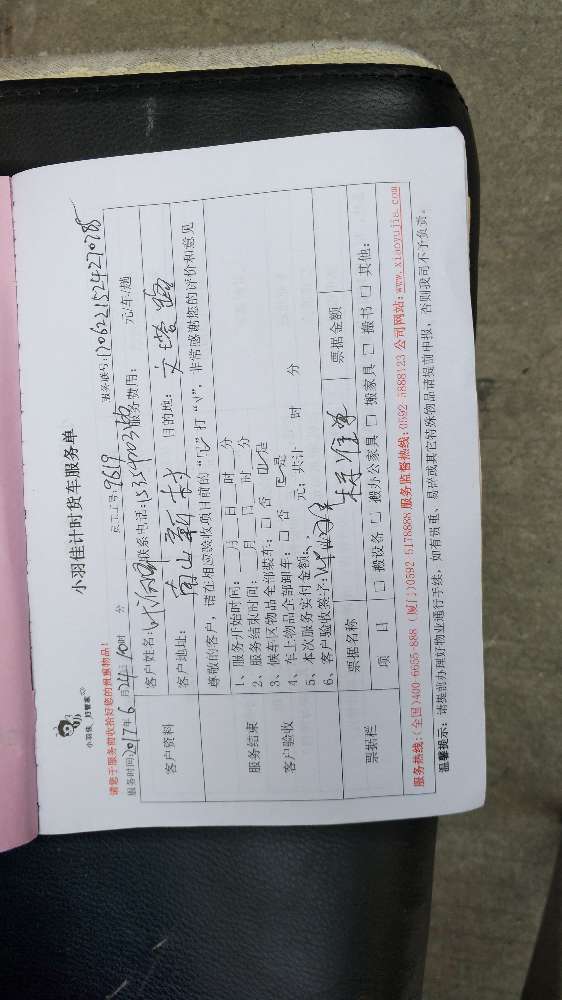 小羽佳，好管家
小羽佳计时货车服务单
请您于服务前收拾好您的贵重物品！
服务时间：2017年6月24日10时 分 员工工号：9619 服务账号：
客户资料 客户姓名： 联系电话： 服务费用： 元/车/趟
客户地址：南山新村 目的地：文塔路
尊敬的客户，请在相应验收项目前的“□”打“√”，非常感谢您的评价和意见
服务结束
客户验收
1、服务开始时间：__月__日__时__分
2、服务结束时间：__月__日__时__分
3、候车区物品全部装车：□ 否 ☑ 是
4、车上物品全部卸车：□ 否 ☑ 是
5、本次服务实付金额： 元；共计 时 分
6、客户验收签字：
票据栏 票据名称 票据金额
项 目 □ 搬设备 □ 搬办公家具 □ 搬家具 □ 搬书 □ 其他：
服务热线：(全国)400-6655-888 (厦门)0592 5178888 服务监督热线：0592 5888123 公司网站：www.xiaoyujia.com
温馨提示：请提前办理好物业通行手续，如有贵重、易碎或其它特殊物品请提前申报，否则我司不予负责。